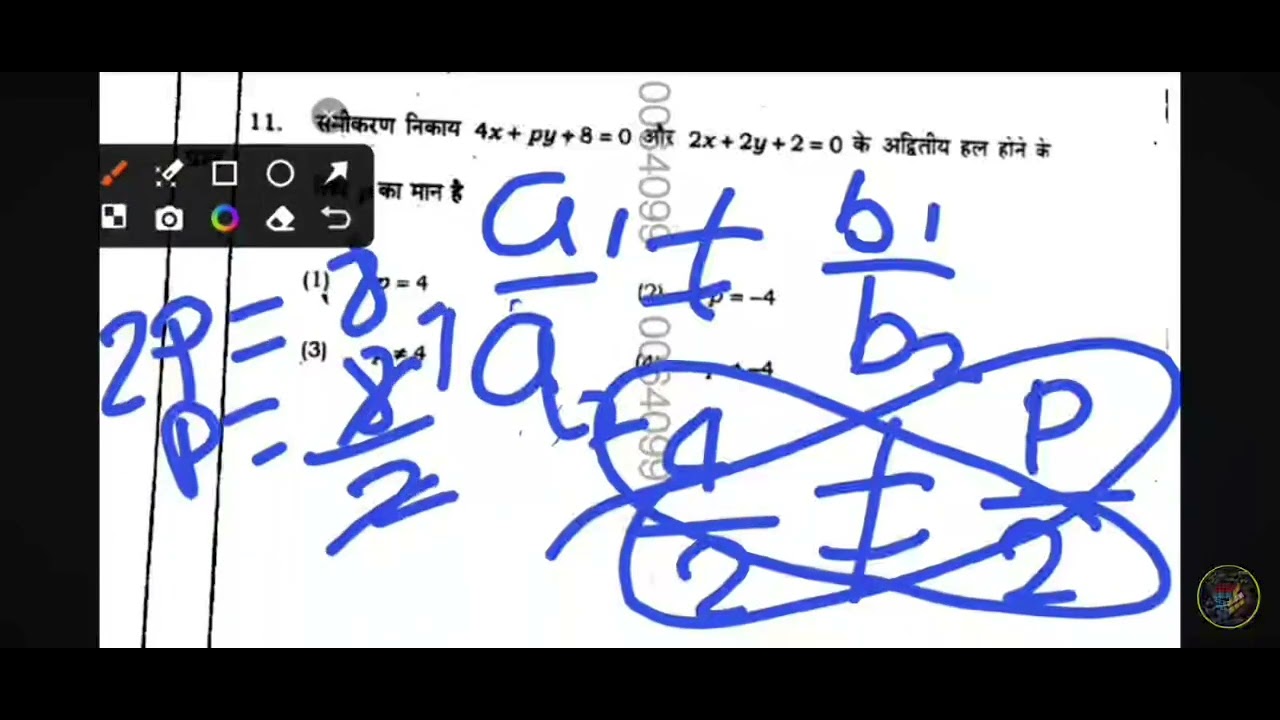 11. समीकरण निकाय 4x + py + 8 = 0 और 2x + 2y + 2 = 0 के अद्वितीय हल होने के
का मान है
(1) p = 4
(2) p = -4
(3) ≠ 4
(4) -4
0064099
0064099
a1 ≠ b1
a2 b2
4 ≠ p
2 2
2p = 8
p = 8
2